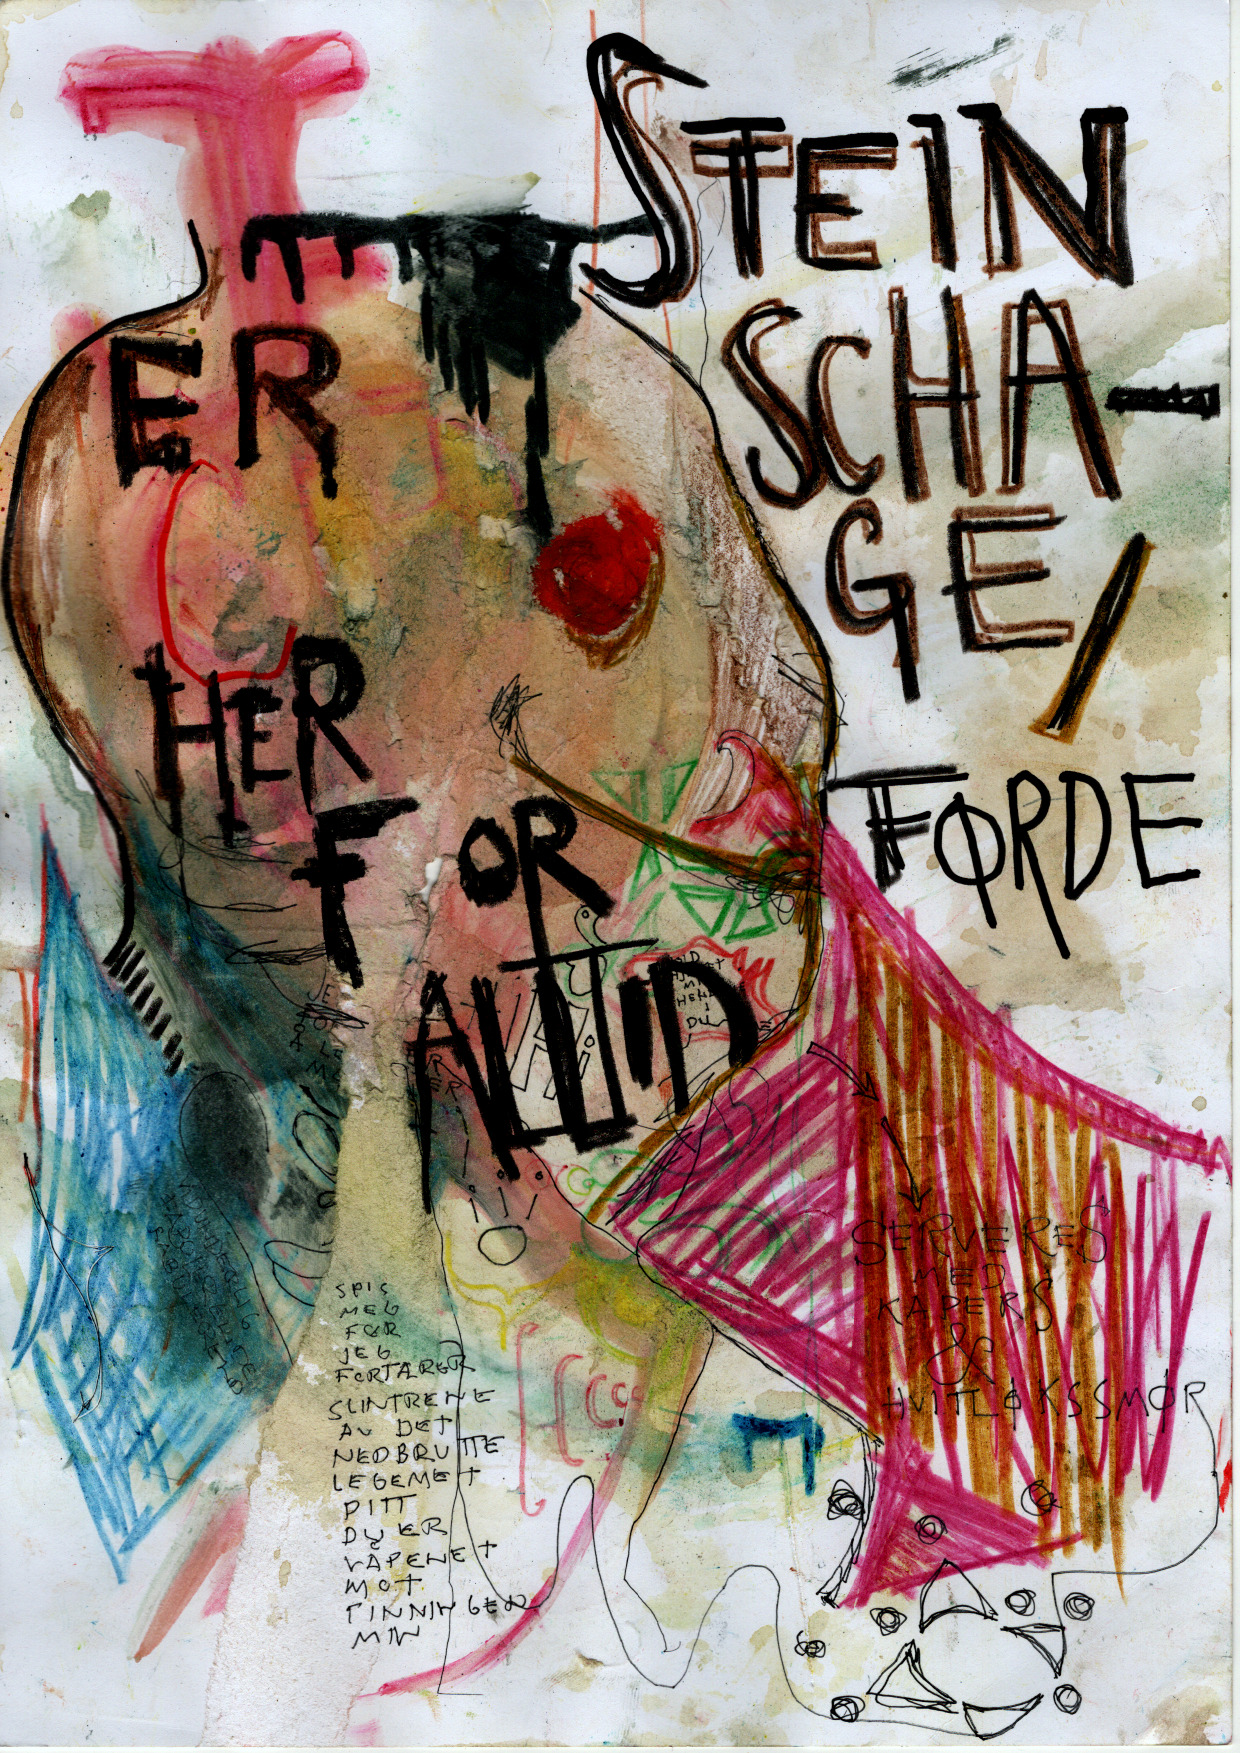 STEIN
SCHA-
GE/
FØRDE
ER
HER
FOR
ALLTID
SERVERES
MED
KAPERS
&
HVITLØKSSMØR
SPIS
MEG
FØR
JEG
FORTÆRER
SLINTRENE
AV DET
NEDBRUTTE
LEGEMET
DITT
DU ER
VÅPENET
MOT
TINNINGEN
MIN